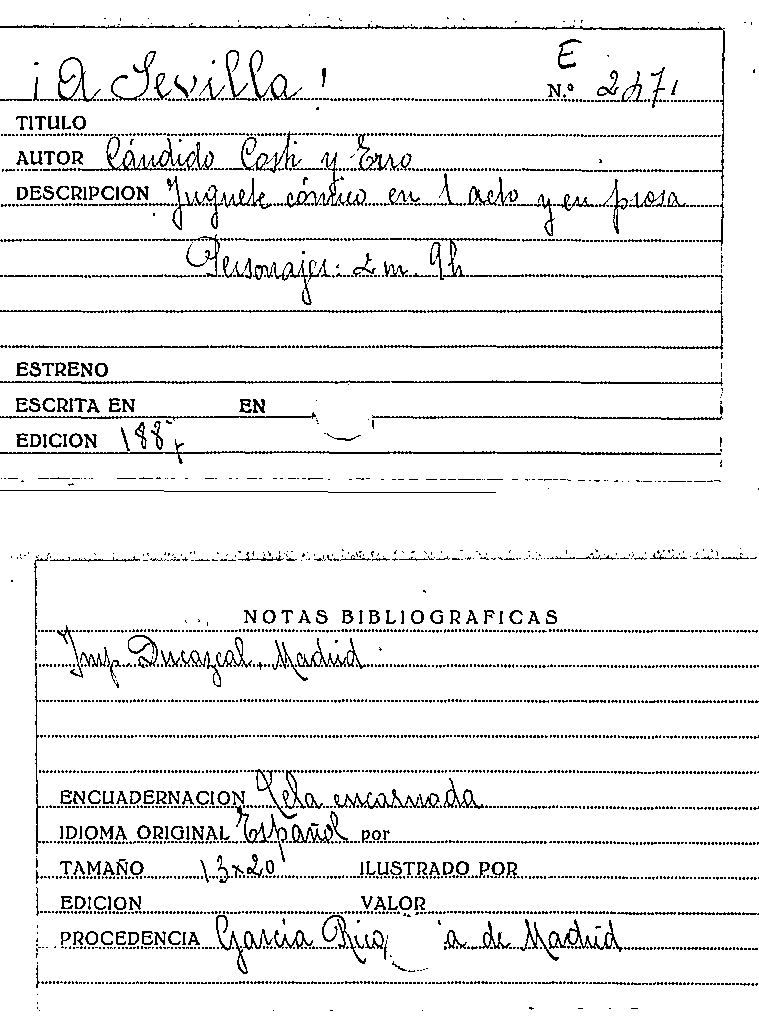 E
¡A Sevilla!
N.º 2471
TITULO
AUTOR Cándido Costi y Erro
DESCRIPCION Juguete cómico en 1 acto y en prosa
Personajes: 2 m. 9 h
ESTRENO
ESCRITA EN EN
EDICION 188
NOTAS BIBLIOGRAFICAS
Imp. Ducazcal. Madrid
ENCUADERNACION Tela encarnada
IDIOMA ORIGINAL Español por
TAMAÑO 13x20 ILUSTRADO POR
EDICION VALOR
PROCEDENCIA García Rico a de Madrid